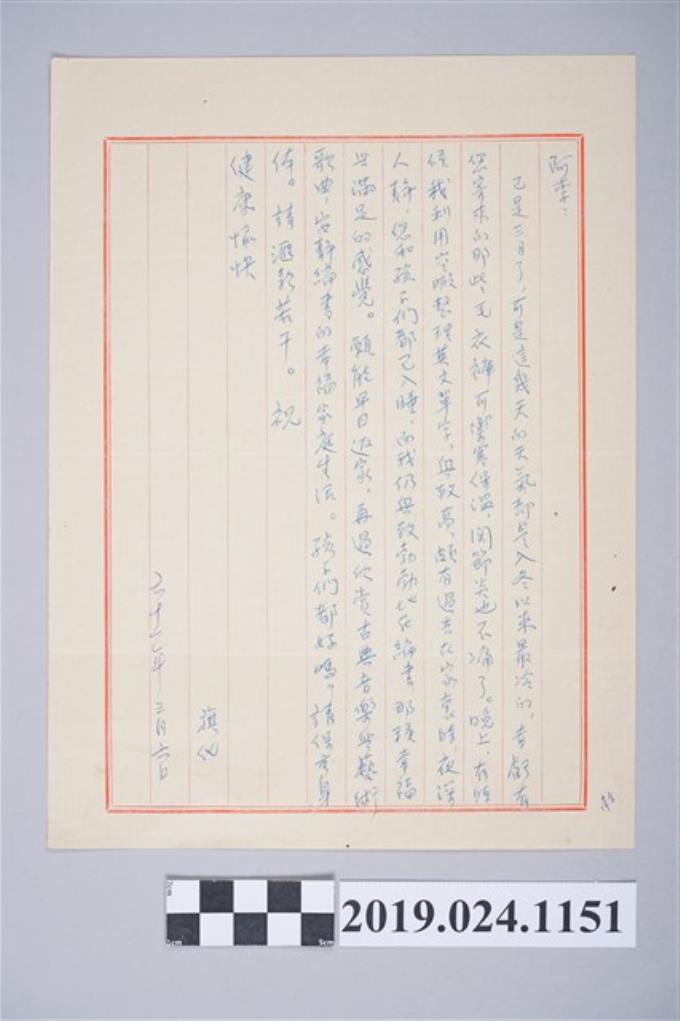 阿李：
已是三月了，可是這幾天的天氣却是入冬以來最冷的，幸虧有
您寄來的那些毛衣褲可禦寒保溫，関節炎也不痛了。晚上，有時
候我利用空暇整理英文單字，興致高，頗有過去在家裏時，夜深
人靜，您和孩子們都已入睡，而我仍興致勃勃地在繪畫，那種幸福
與滿足的感覺。願能早日返家，再過欣賞古典音樂與藝術
歌曲，安靜繪畫的幸福家庭生活。孩子們都好嗎？請保重身
体。請滙款若干。祝
健康愉快
旗化
六十一年三月六日
2019.024.1151
5cm